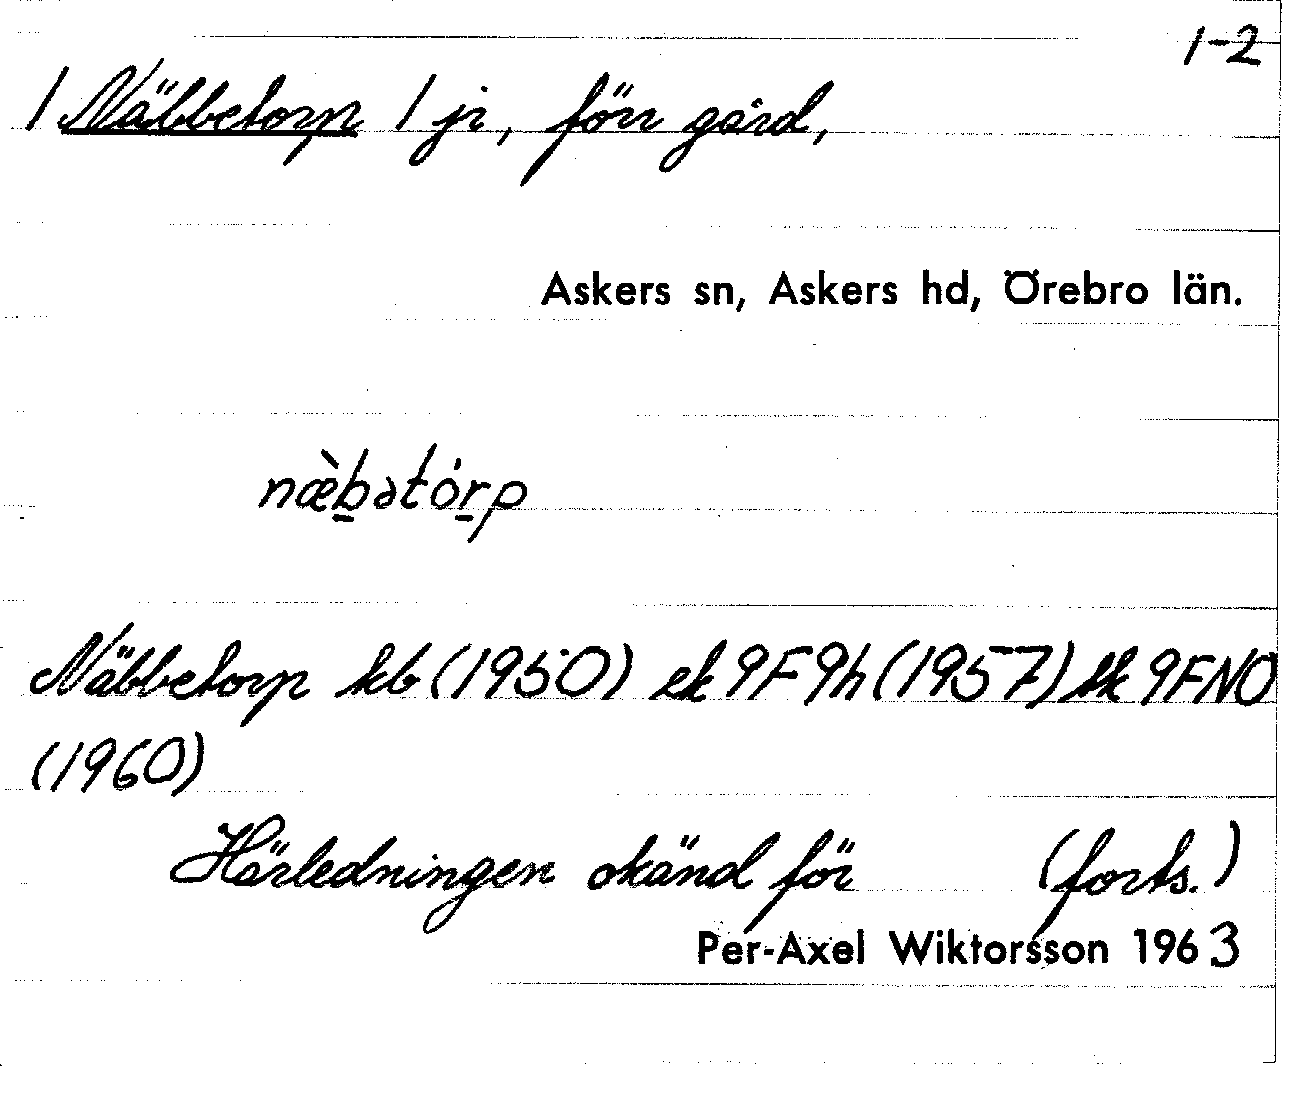 1-2
/ Näbbetorp / jr, förr gård,
Askers sn, Askers hd, Örebro län.
næ̀b̲ətór̲p
Näbbetorp kb (1950) ek 9F9h (1957) tk 9FNO
(1960)
Härledningen okänd för (forts.)
Per-Axel Wiktorsson 1963